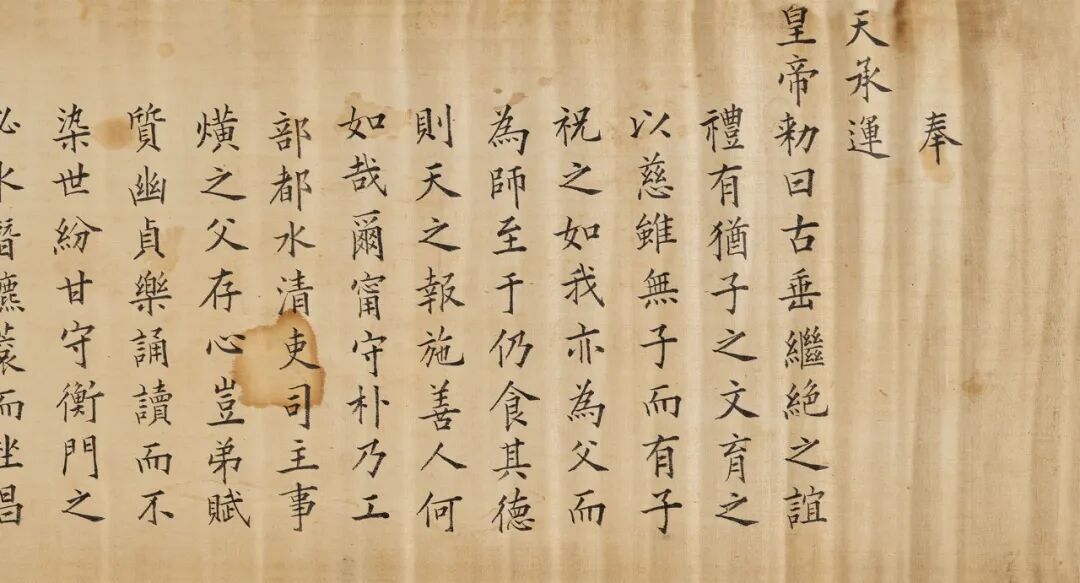 奉
天承運
皇帝勅曰古垂繼絶之誼
禮有猶子之文育之
以慈雖無子而有子
祝之如我亦為父而
為師至于仍食其德
則天之報施善人何
如哉爾甯守朴乃工
部都水清吏司主事
熿之父存心豈弟賦
質幽貞樂誦讀而不
染世紛甘守衡門之
泌水
而坐昌